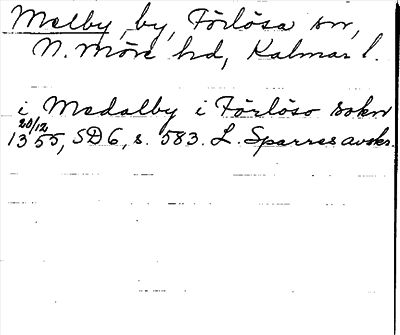 Melby, by, Förlösa sn,
N. Möre hd, Kalmar l.
i Medalby i Förløso sokn
20/12
1355, SD 6, s. 583. L. Sparres avskr.